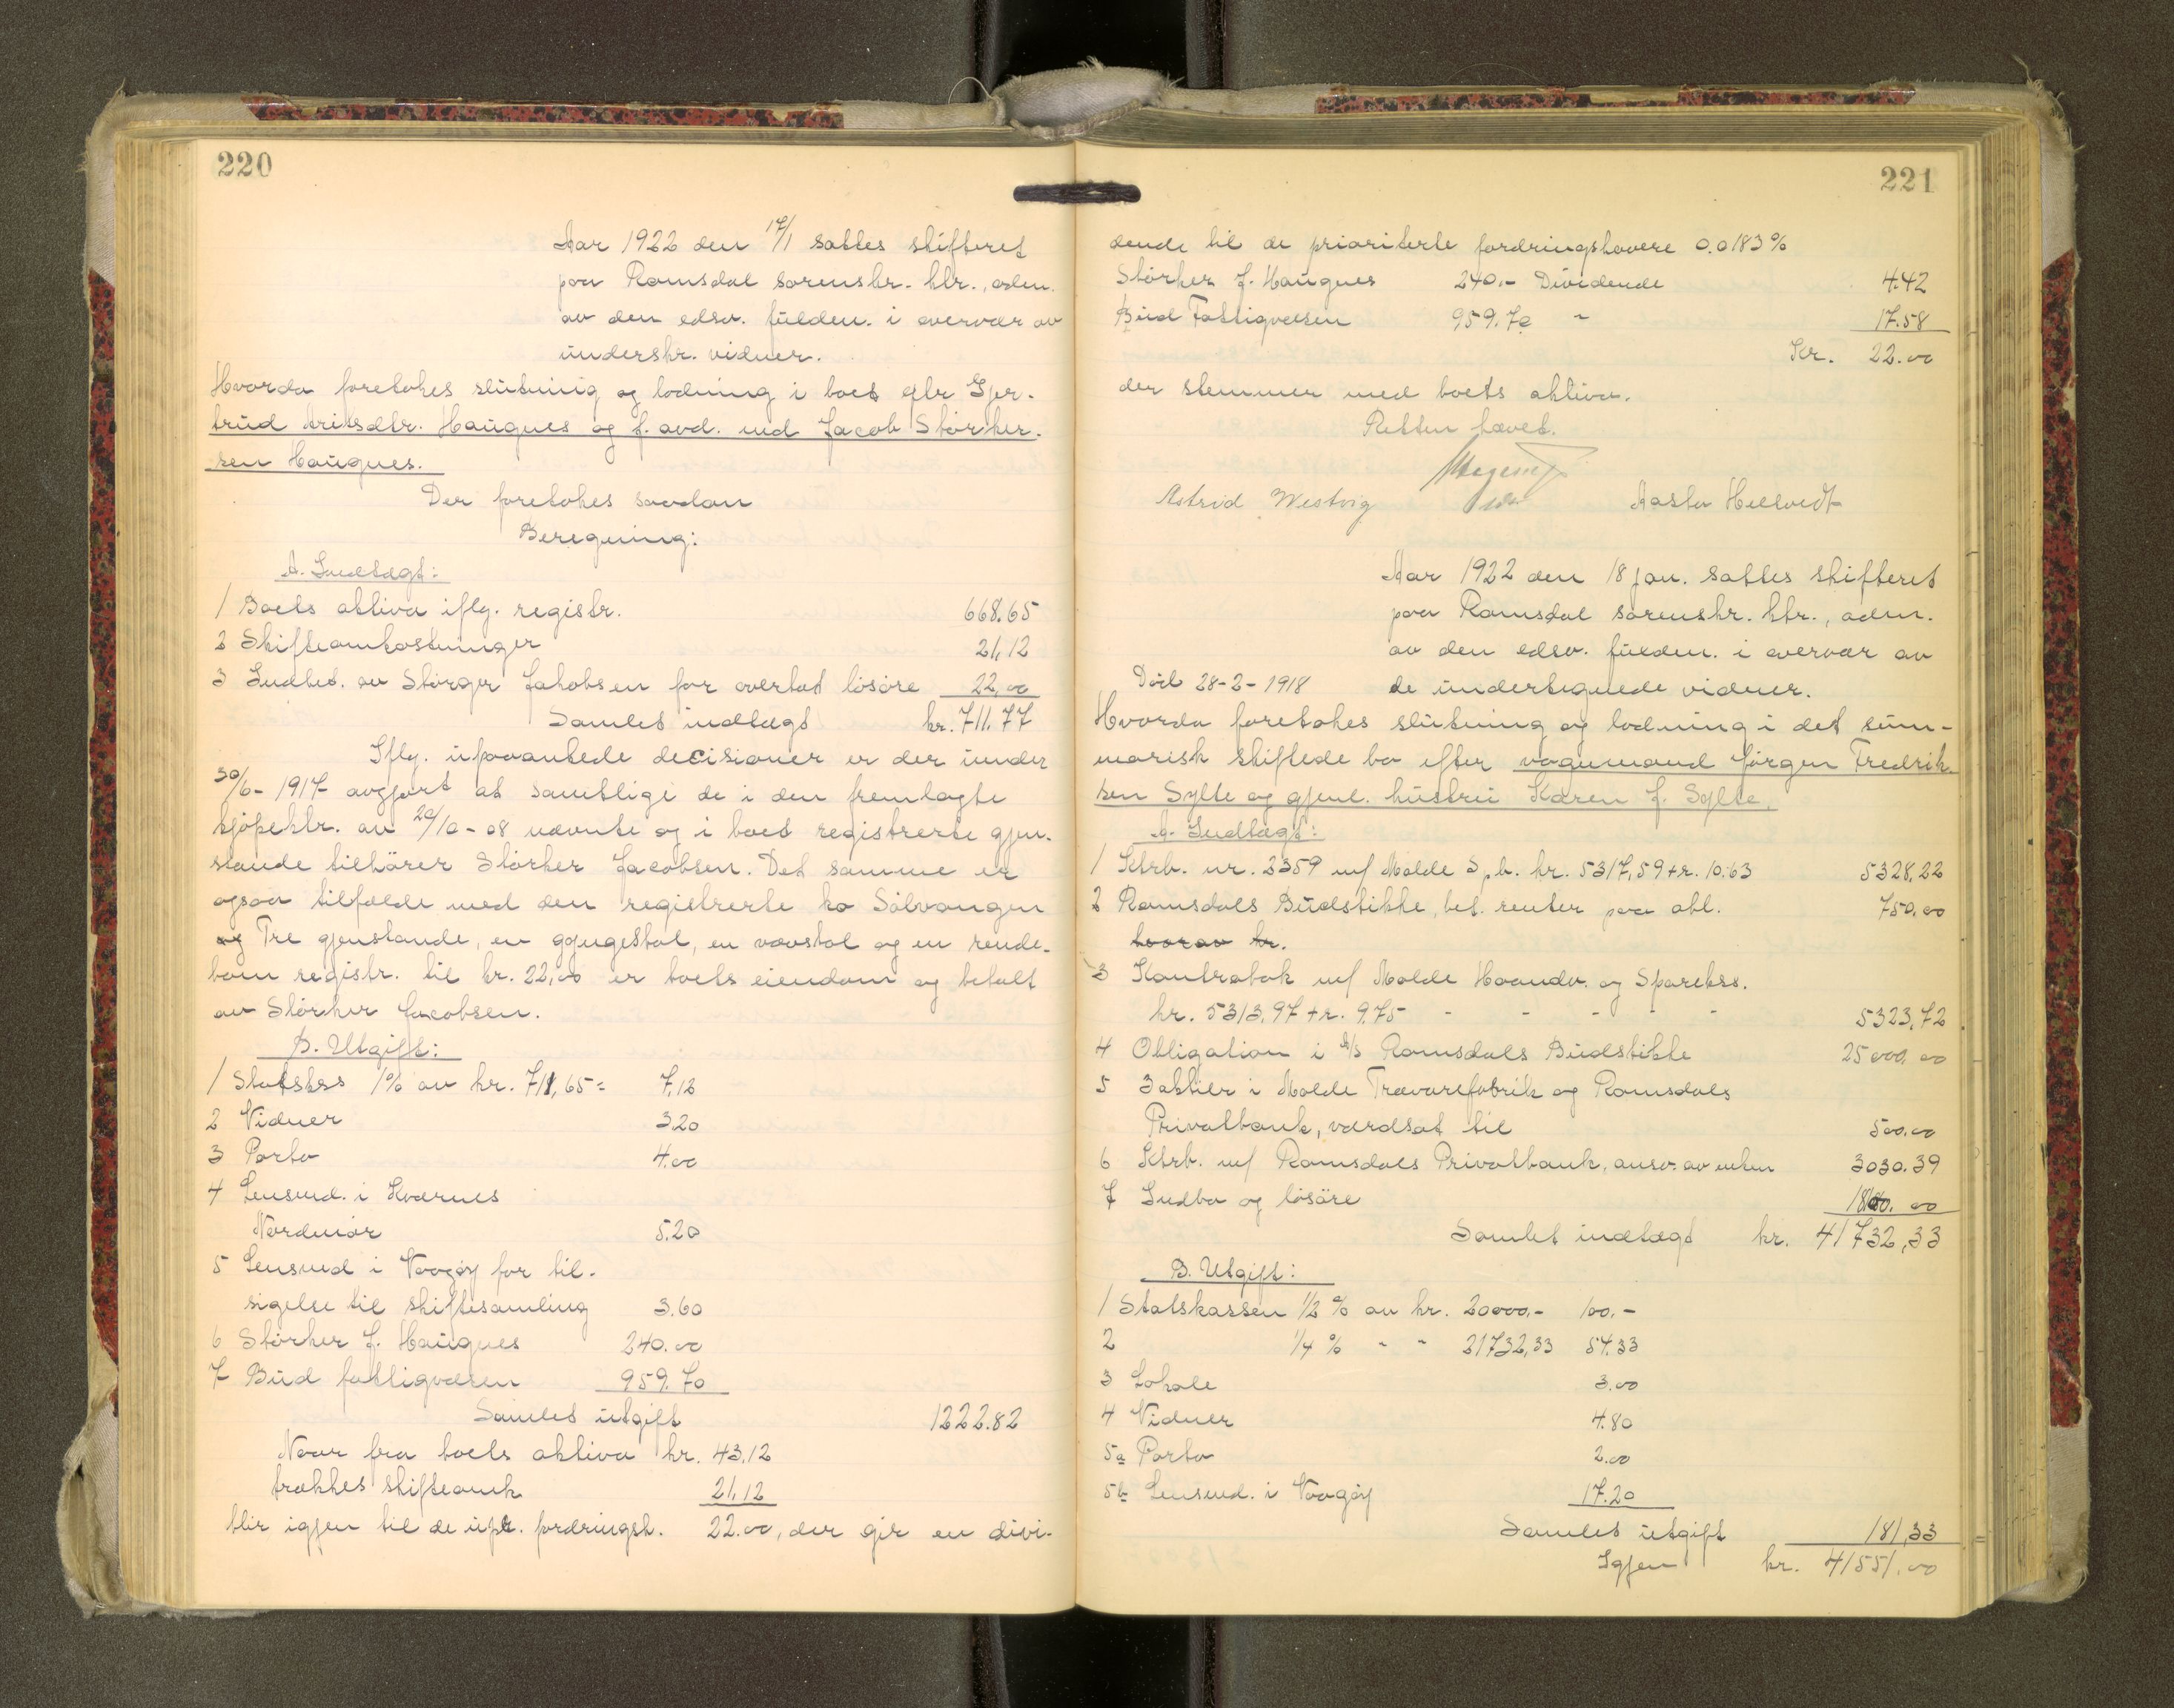 220
Aar 1922 den 17/1 sattes skifteret
paa Romsdal sorenskr. ktr., adm.
av den edsv. fuldm. i overvær av
underskr. vidner.
Hvorda foretokes slutning og lodning i boet eftr Gjer-
trud Eriksdtr. Haugnes og f. avd. md Jacob Størker-
sen Haugnes.
Der foretokes saadan
Beregning:
A. Indtægt:
1 Boets aktiva iflg. registr. 668.65
2 Skifteomkostninger 21,12
3 Indbet. av Størger Jakobsen for overtat løsøre 22,00
Samlet indtægt kr. 711.77
Iflg. upaaankede decisioner er der under
30/6-1917 avgjort at samtlige de i den fremlagte
kjøpektr. av 20/10-08 nævnte og i boet registrerte gjen-
stande tilhører Størker Jacobsen. Det samme er
ogsaa tilfælde med den registrerte ko Sølvangen
og Tre gjenstande, en gyngestol, en vævstol og en rende-
bom registr. til kr. 22,00 er boets eiendom og betalt
av Størker Jacobsen.
B. Utgift:
1 Statskss 1% av kr. 711,65 = 7,12
2 Vidner 3.20
3 Porto 4.00
4 Lensmd. i Kvernes
Nordmør 5.20
5 Lensmd i Vaagøy for til-
sigelse til skiftesamling 3.60
6 Størker J. Haugnes 240.00
7 Bud fattigvæsen 959.70
Samlet utgift 1222.82
Naar fra boets aktiva kr. 43.12
trækkes skifteomk 21,12
blir igjen til de upr. fordringsh. 22.00, der gir en divi-
221
dende til de prioriterte fordringshavere 0.0183%
Størker J. Haugnes 240.- Dividende 4.42
Bud Fattigvæsen 959.70 " 17.58
Kr. 22.00
der stemmer med boets aktiva.
Retten hævet.
Astrid Westvig Aasta Hellvedt
Aar 1922 den 18 jan. sattes skifteret
paa Romsdal sorenskr. ktr., adm.
av den edsv. fuldm. i overvær av
Død 28-2-1918 de undertegnede vidner.
Hvorda foretokes slutning og lodning i det sum-
marisk skiftede bo efter vognmand Jørgen Fredrik-
sen Sylte og gjenl. hustru Karen J. Sylte.
A. Indtægt:
1 Ktrb. nr. 2359 m/ Molde Spb. kr. 5317,59 + r. 10.63 5328,22
2 Romsdals Budstikke, bet. renter paa obl. 750.00
hvorav kr.
3 Kontrabok m/ Molde Haandv. og Sparekss.
kr. 5313,97 + r. 9.75 - - - - - 5323,72
4 Obligation i A/s Romsdals Budstikke 25000.00
5 3 aktier i Molde Trævarefabrik og Romsdals
Privatbank, værdsat til 500.00
6 Ktrb. m/ Romsdals Privatbank, ansv. av enken 3030.39
7 Indbo og løsøre 1800.00
Samlet indtægt kr. 41732,33
B. Utgift:
1 Statskassen 1/2 % av kr. 20000,- 100.-
2 1/4 % " " 21732,33 54.33
3 Lokale 3.00
4 Vidner 4.80
5a Porto 2.00
5b Lensmd. i Vaagøy 17.20
Samlet utgift 181,33
Igjen kr. 41551.00